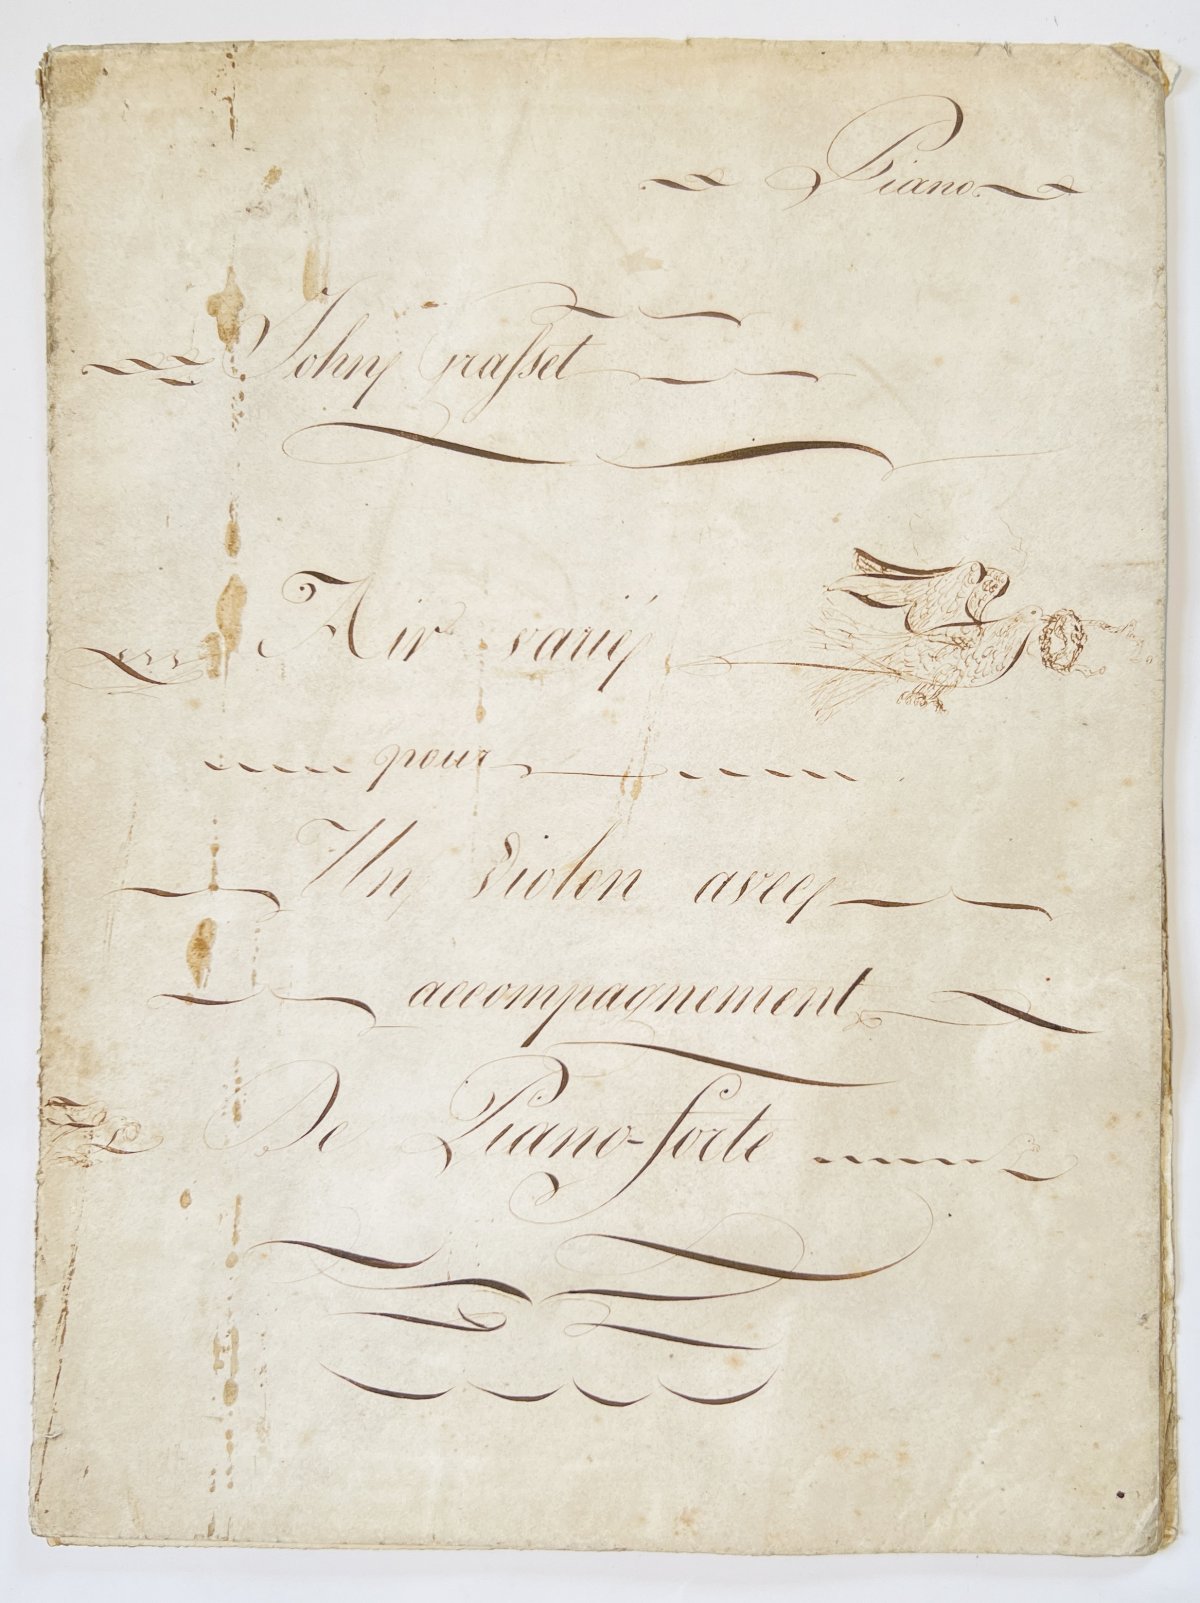 Piano
Johny Grasset
Air varié
pour
Un Violon avec
accompagnement
De Piano-forte